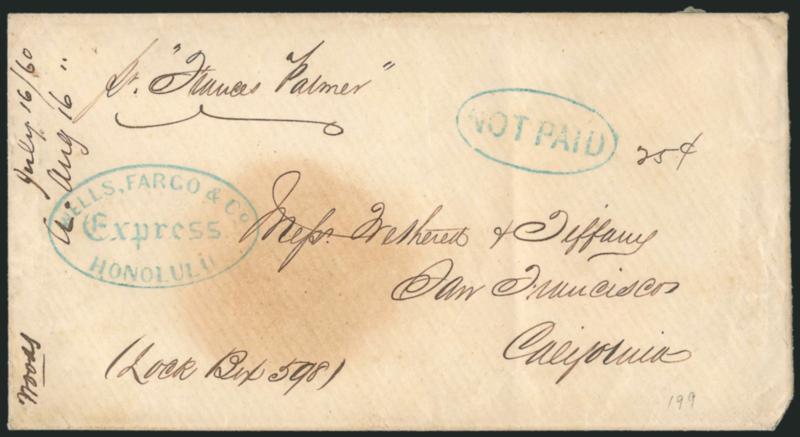 pr. "Frances Palmer"
NOT PAID
25¢
July 16/60
A. Aug 16 "
WELLS, FARGO & Co
Express.
HONOLULU
Messr. Wethered & Tiffany
San Francisco
California
(Lock Box 598)
Woods
199